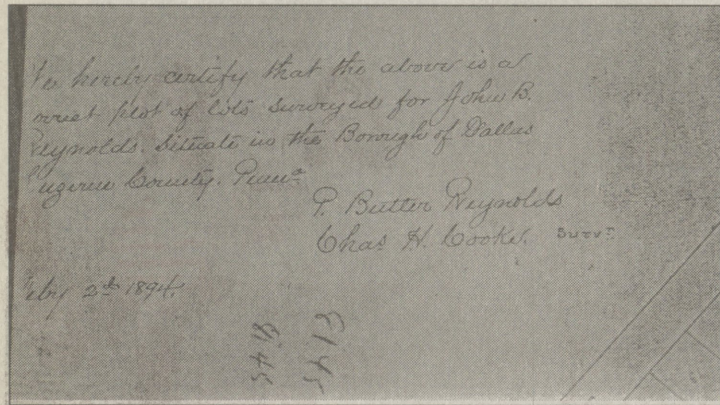 We hereby certify that the above is a
orrect plot of lots surveyed for John B.
Reynolds. Situate in the Borough of Dallas
Luzerne County. Penna
P. Butler Reynolds
Chas. H. Cooke. Surv.
Feby 2d 1894.